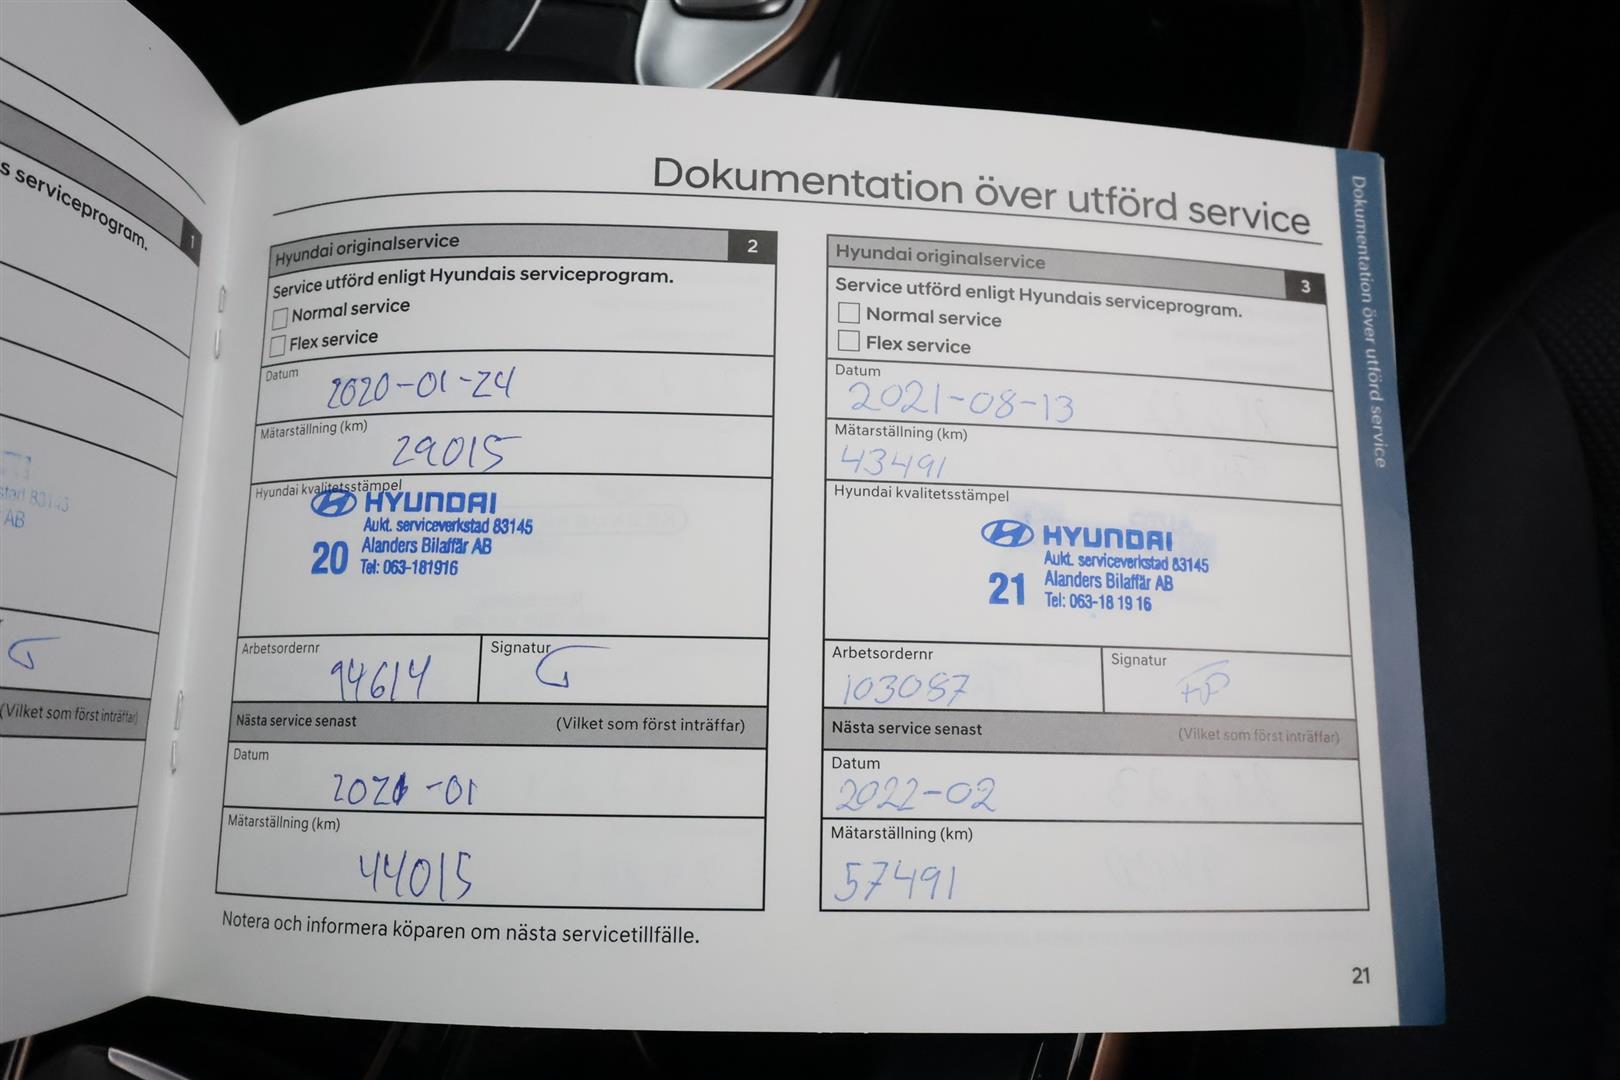 s serviceprogram.
1
(Vilket som först inträffar)
Dokumentation över utförd service
Hyundai originalservice 2
Service utförd enligt Hyundais serviceprogram.
Normal service
Flex service
Datum
2020-01-24
Mätarställning (km)
29015
Hyundai kvalitetsstämpel
HYUNDAI
Aukt. serviceverkstad 83145
20 Alanders Bilaffär AB
Tel: 063-181916
Arbetsordernr
94614
Signatur
Nästa service senast (Vilket som först inträffar)
Datum
2021-01
Mätarställning (km)
44015
Notera och informera köparen om nästa servicetillfälle.
Hyundai originalservice 3
Service utförd enligt Hyundais serviceprogram.
Normal service
Flex service
Datum
2021-08-13
Mätarställning (km)
43491
Hyundai kvalitetsstämpel
HYUNDAI
Aukt. serviceverkstad 83145
21 Alanders Bilaffär AB
Tel: 063-18 19 16
Arbetsordernr
103087
Signatur
Nästa service senast (Vilket som först inträffar)
Datum
2022-02
Mätarställning (km)
57491
21
Dokumentation över utförd service